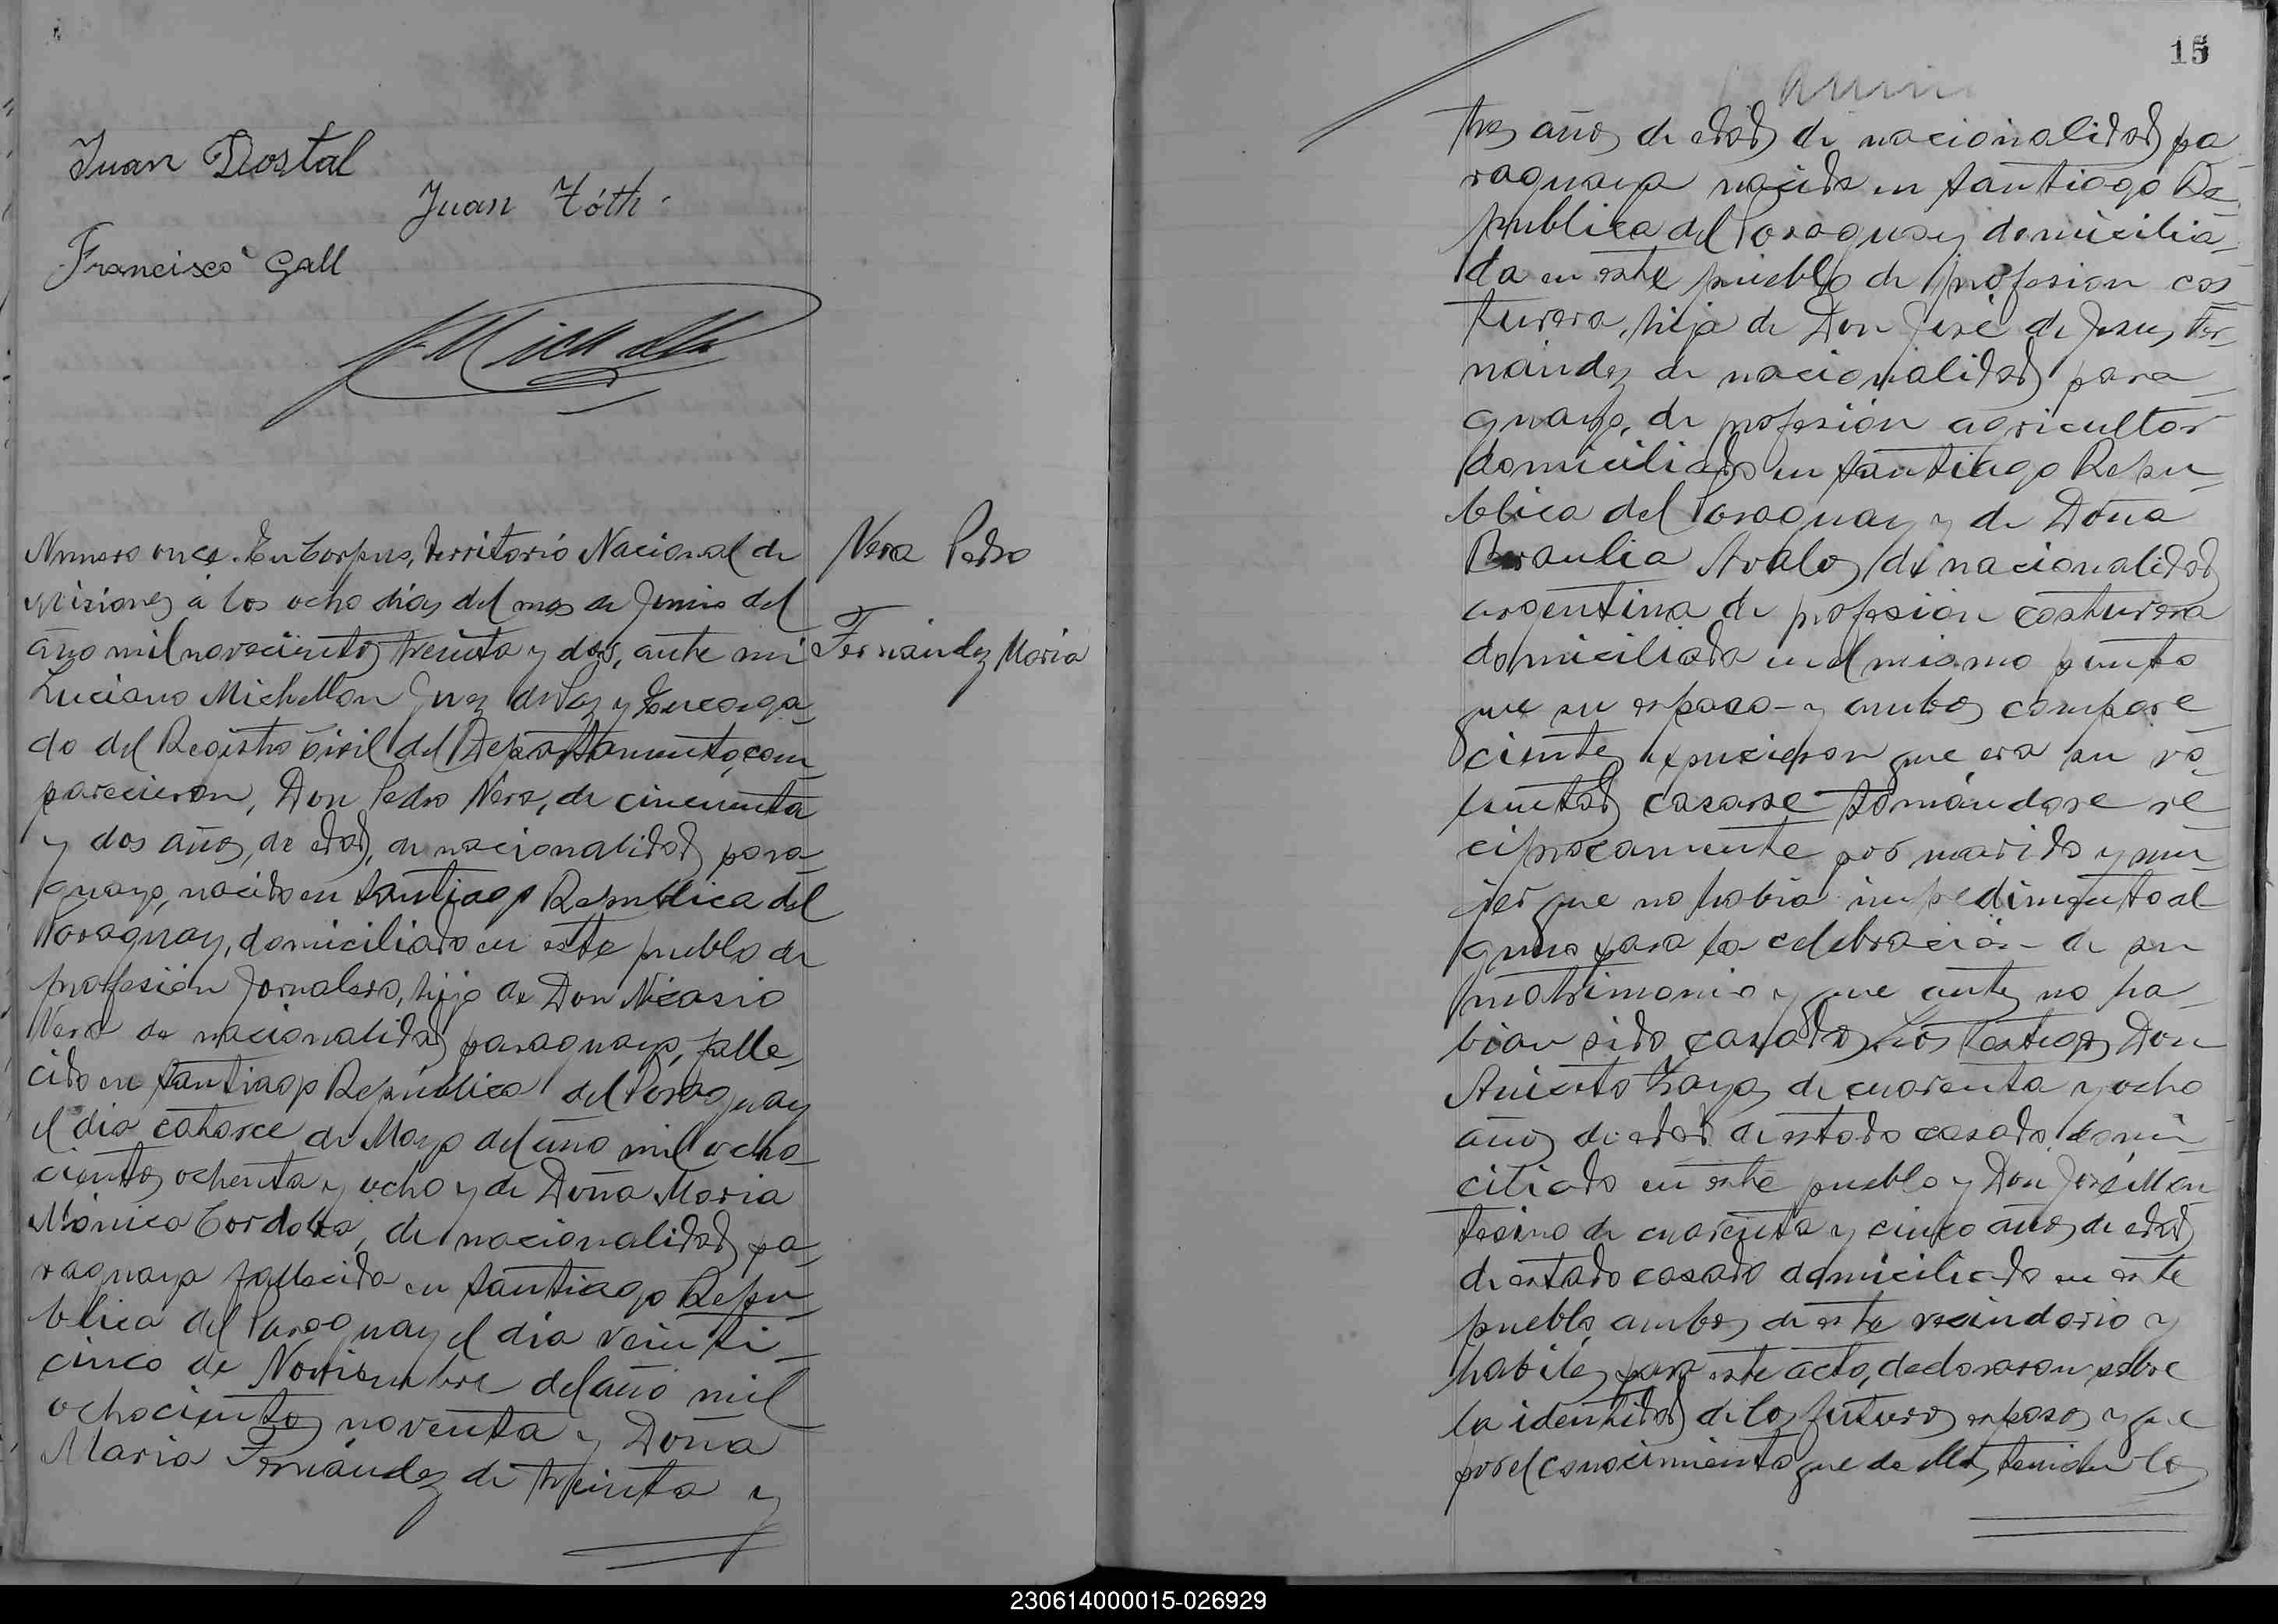 Juan Dostal
Juan Tóth.
Francisco Gall
Numero once. En Corpus, Territorio Nacional de
Misiones á los ocho dias del mes de Junio del
año mil novecientos treinta y dos, ante mi
Luciano Michellon Juez de Paz y Encarga
do del Registro Civil del Departamento, com
parecieron, Don Pedro Vera, de cincuenta
y dos años, de edad, de nacionalidad para
guayo, nacido en Santiago Republica del
Paraguay, domiciliado en este pueblo de
profesión Jornalero, hijo de Don Nicasio
Vera de nacionalidad paraguayo, falle
cido en Santiago República del Paraguay
el dia catorce de Mayo del año mil ocho
cientos ochenta y ocho y de Doña Maria
Mónica Cordoba, de nacionalidad pa
raguaya fallecida en Santiago Repu
blica del Paraguay el dia veinti
cinco de Noviembre del año mil
ochocientos noventa y Doña
Maria Fernández de treinta y
Vera Pedro
Fernández Maria
15
tres años de edad de nacionalidad pa
raguaya nacida en Santiago Re
publica del Paraguay domicilia
da en este pueblo de profesion cos
turera, hija de Don José de Jesus Fer
nández de nacionalidad para
guayo, de profesión agricultor
domiciliado en Santiago Repu
blica del Paraguay y de Doña
Braulia Avalos de nacionalidad
argentina de profesión costurera
domiciliada en el mismo punto
que su esposo y ambos compare
cientes expusieron que era su vo
luntad casarse tomándose re
ciprocamente por marido y mu
jer que no habia impedimento al
guno para la celebración de su
matrimonio y que antes no ha
bian sido casados Los testigos Don
Aniceto Zayas de cuarenta y ocho
años de edad de estado casado domi
ciliado en este pueblo y Don José Mon
tesino de cuarenta y cinco años de edad
de estado casado domiciliado en este
pueblo, ambos de este vecindario y
habiles para este acto, declararon sobre
la identidad de los futuros esposos y que
por el conocimiento que de ellos tenian los
230614000015-026929